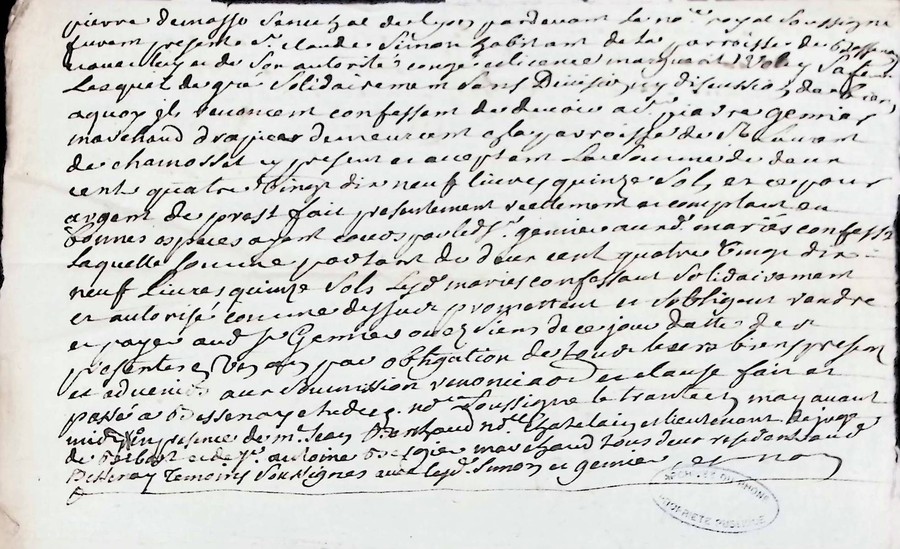 pierre demasso senechal de lyon pardevant le no.re royal soussigne
furent presents s.r claude Simon habitant de la parroisse de bessenay
de son autorité congé et licence
Lesquels de gré solidairement sans Division ny discussion
a quoy ils renoncent confessent de devoir a s.r pierre Gernier
marchand drapier demeurant a la parroisse de S.t Laurent
de chamosset cy present et acceptant La somme de deux
cent quatre Vingt dix neuf livres quinze Sols et ce pour
argent de prest fait presentement reellement et comptant en
bonnes especes ayant cours par led.t s.r gernier aux d. mariés confess
Laquelle somme portant de deux cent quatre Vingt dix
neuf Livres quinze Sols Les d. mariés confessant solidairement
et autorisé comme dessus promettent et sobligent rendre
et payer aud.t s.r Gernier ou ez siens de ce jour datte de s
presentes en un an par obligation de tous leurs biens present
et advenir aux soumission renonciaon et clause fait et
passé a Bessenay etude de no.re soussigne le trante may avant
midy en presence de m.re Jean no.re chatelain et lieutenant de juge
de et de s.r antoine marchand tous deux residents aud.
Bessenay Temoins Soussignes avec les d. Simon et gernier et non
ARCHIVES DU RHÔNE
PROPRIETE PUBLIQUE